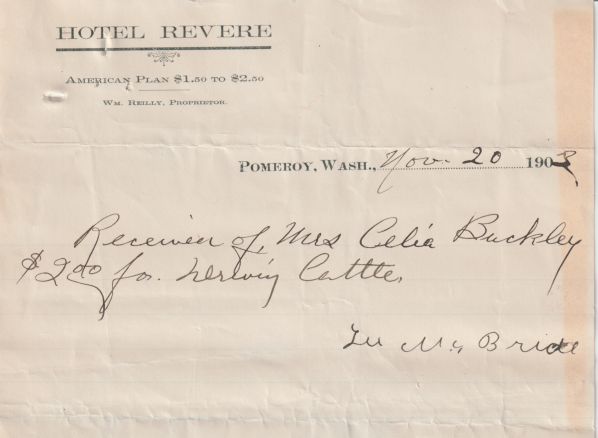 HOTEL REVERE
AMERICAN PLAN $1.50 TO $2.50
WM. REILLY, PROPRIETOR.
POMEROY, WASH., Nov. 20 1903
Received of Mrs Celia Buckley
$2.00 for Cattle
McBride